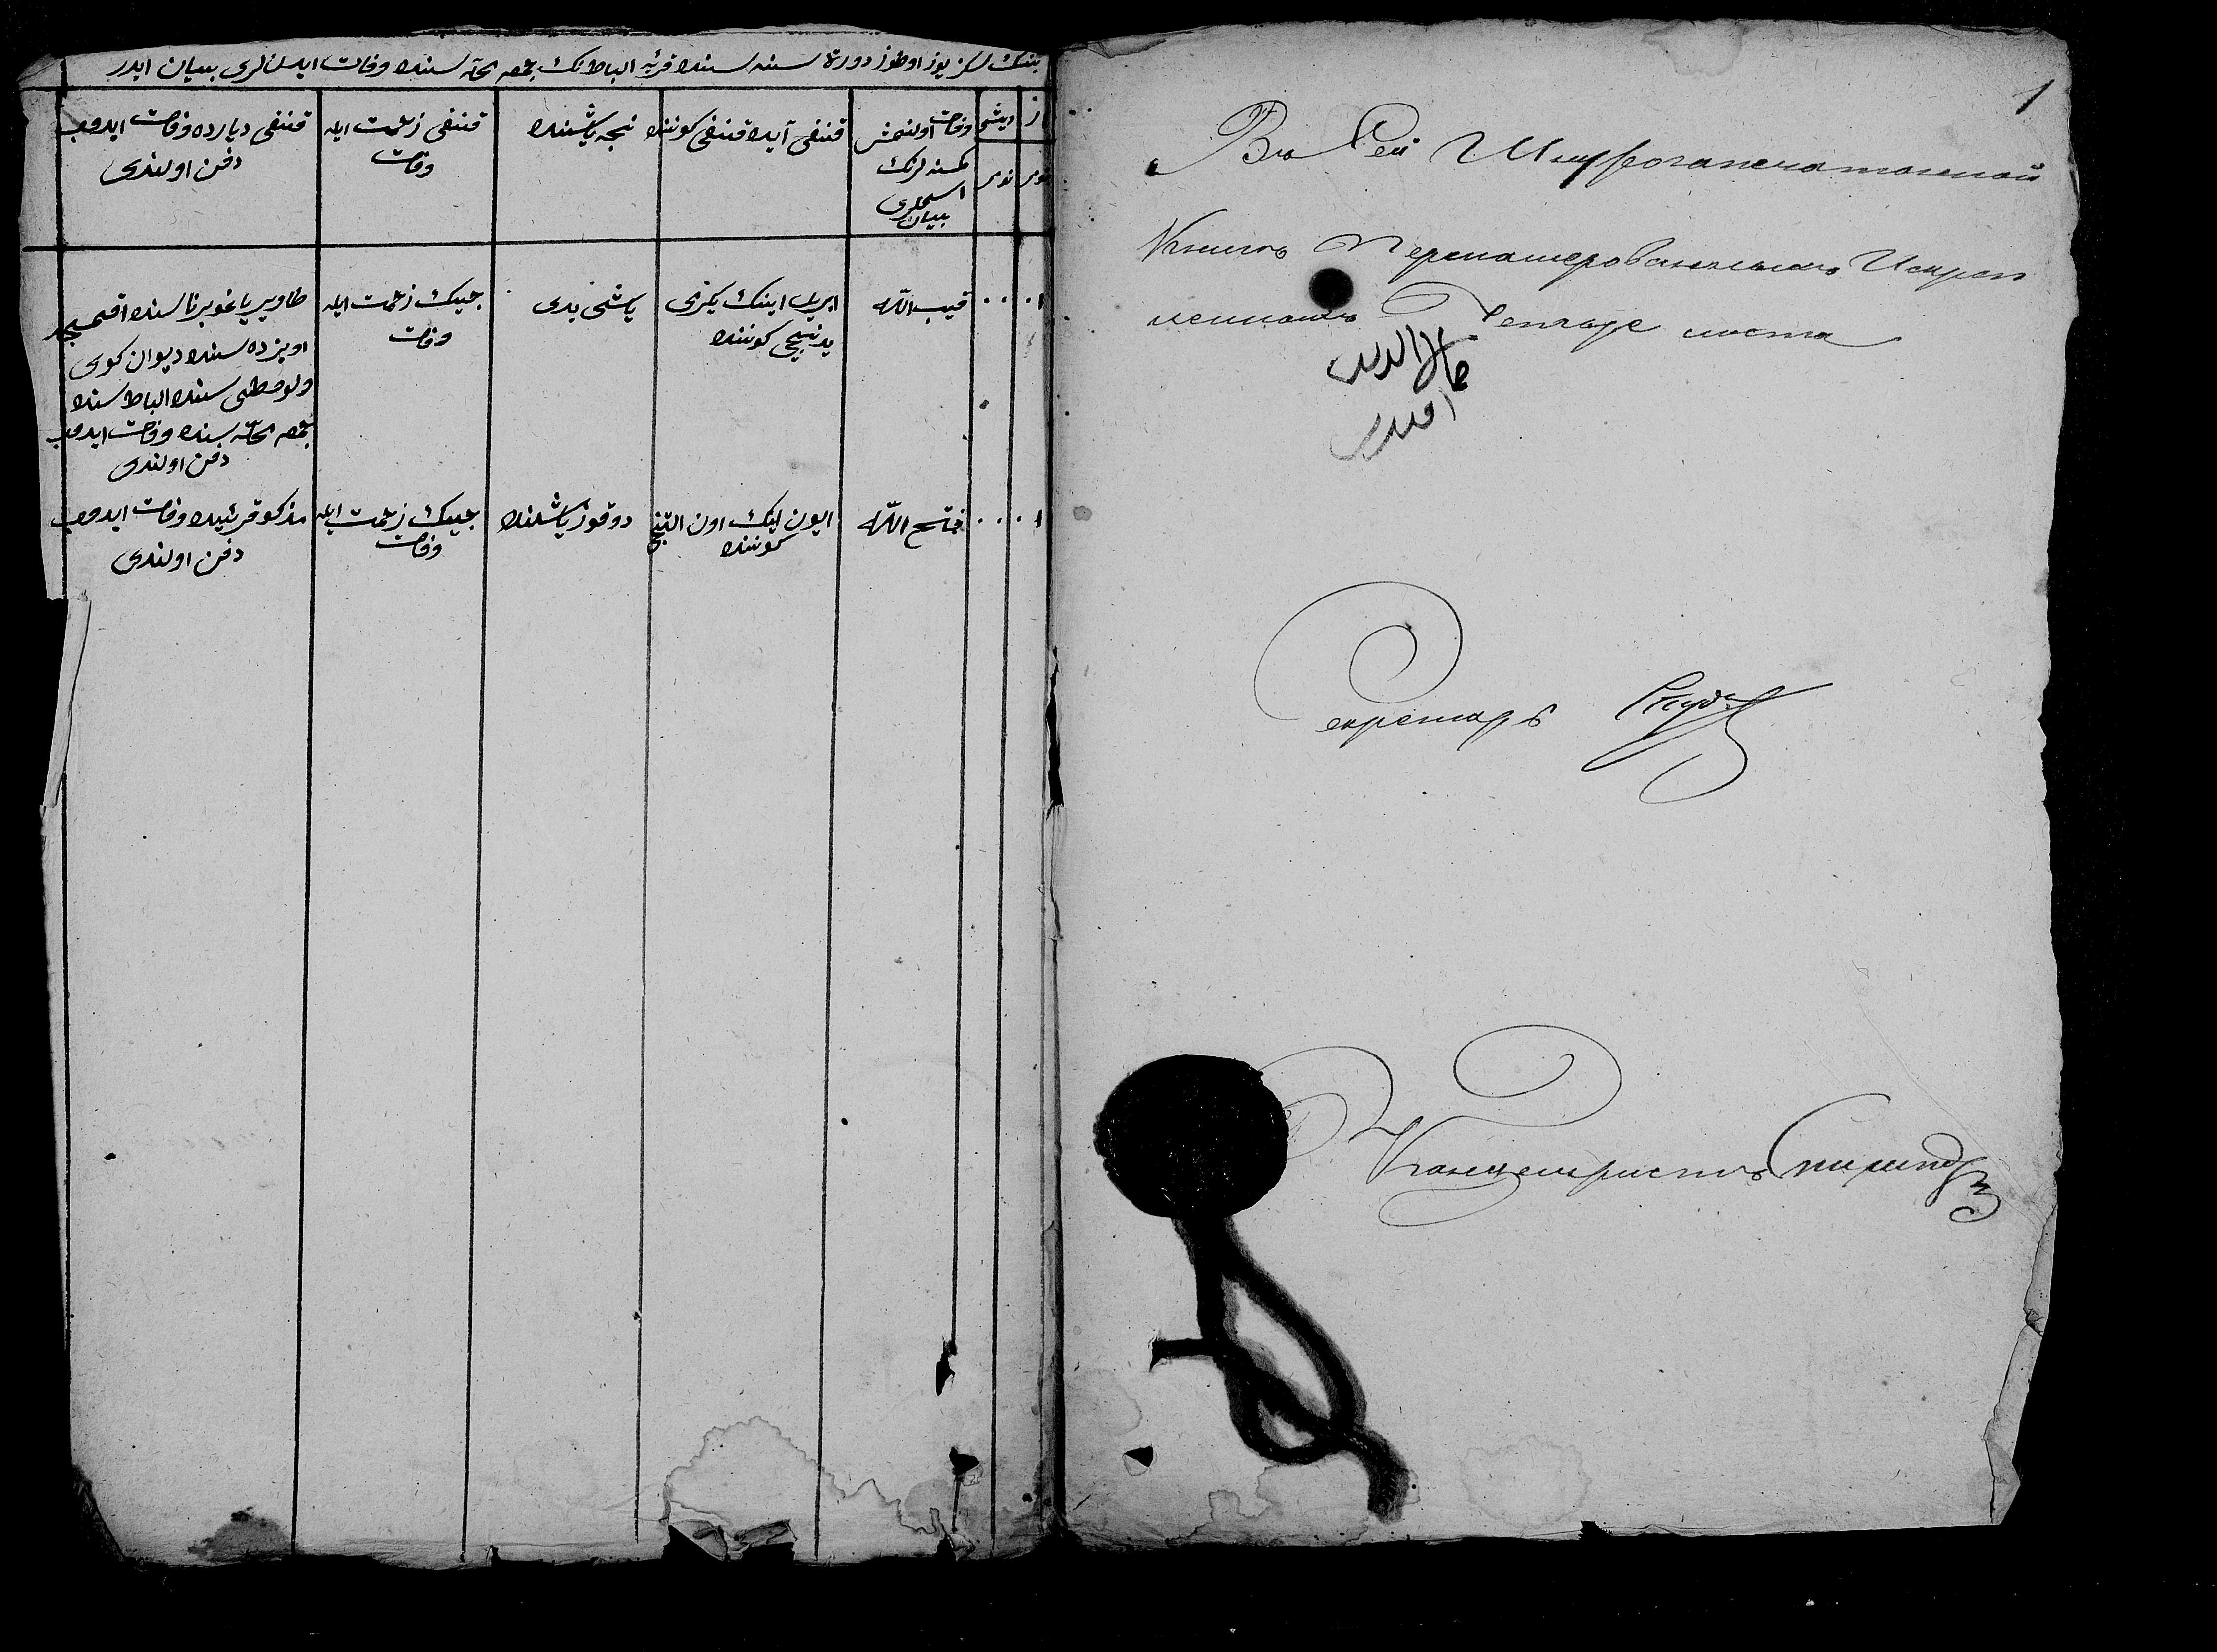 بنك سكز يوز اوطوز دورت سنه سنده قريه الباط نك جمعه محله سنده وفات ايدنلرى بيان ايدر
وفات اولنمش
كمسنه لرنك
اسملرى
بيان
قنغى آيده قنغى كوننده
نيجه ياشنده
قنغى زحمت ايله
وفات
قنغى ديارده وفات ايدوب
دفن اولندى
١
حبيب الله
اپريل اينك يكرمى
يدنجى كوننده
ياشى يدى
چيچك زحمت ايله
وفات
طاوير ياغوبرناسنده اقمسجد
اويزده سنده ديوان كوى
ولوصطى سنده الباط سنده
جمعه محله سنده وفات ايدوب
دفن اولندى
١
فتح الله
ايون اينك اون التنجى
كوننده
دوقوز ياشنده
چيچك زحمت ايله
وفات
مذكور قريه ده وفات ايدوب
دفن اولندى
1
Въ Сей Шнурозапечатанной
Книгѣ Перенумерованныхъ Скреп
ленныхъ листа
Секретарь
Канцеляристъ